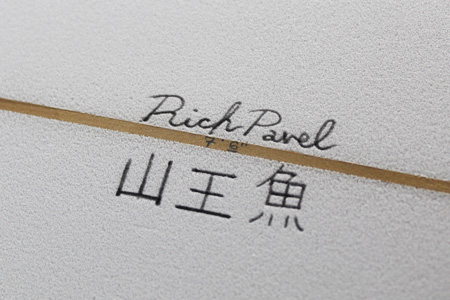 Rich Pavel
7'6"
山王魚